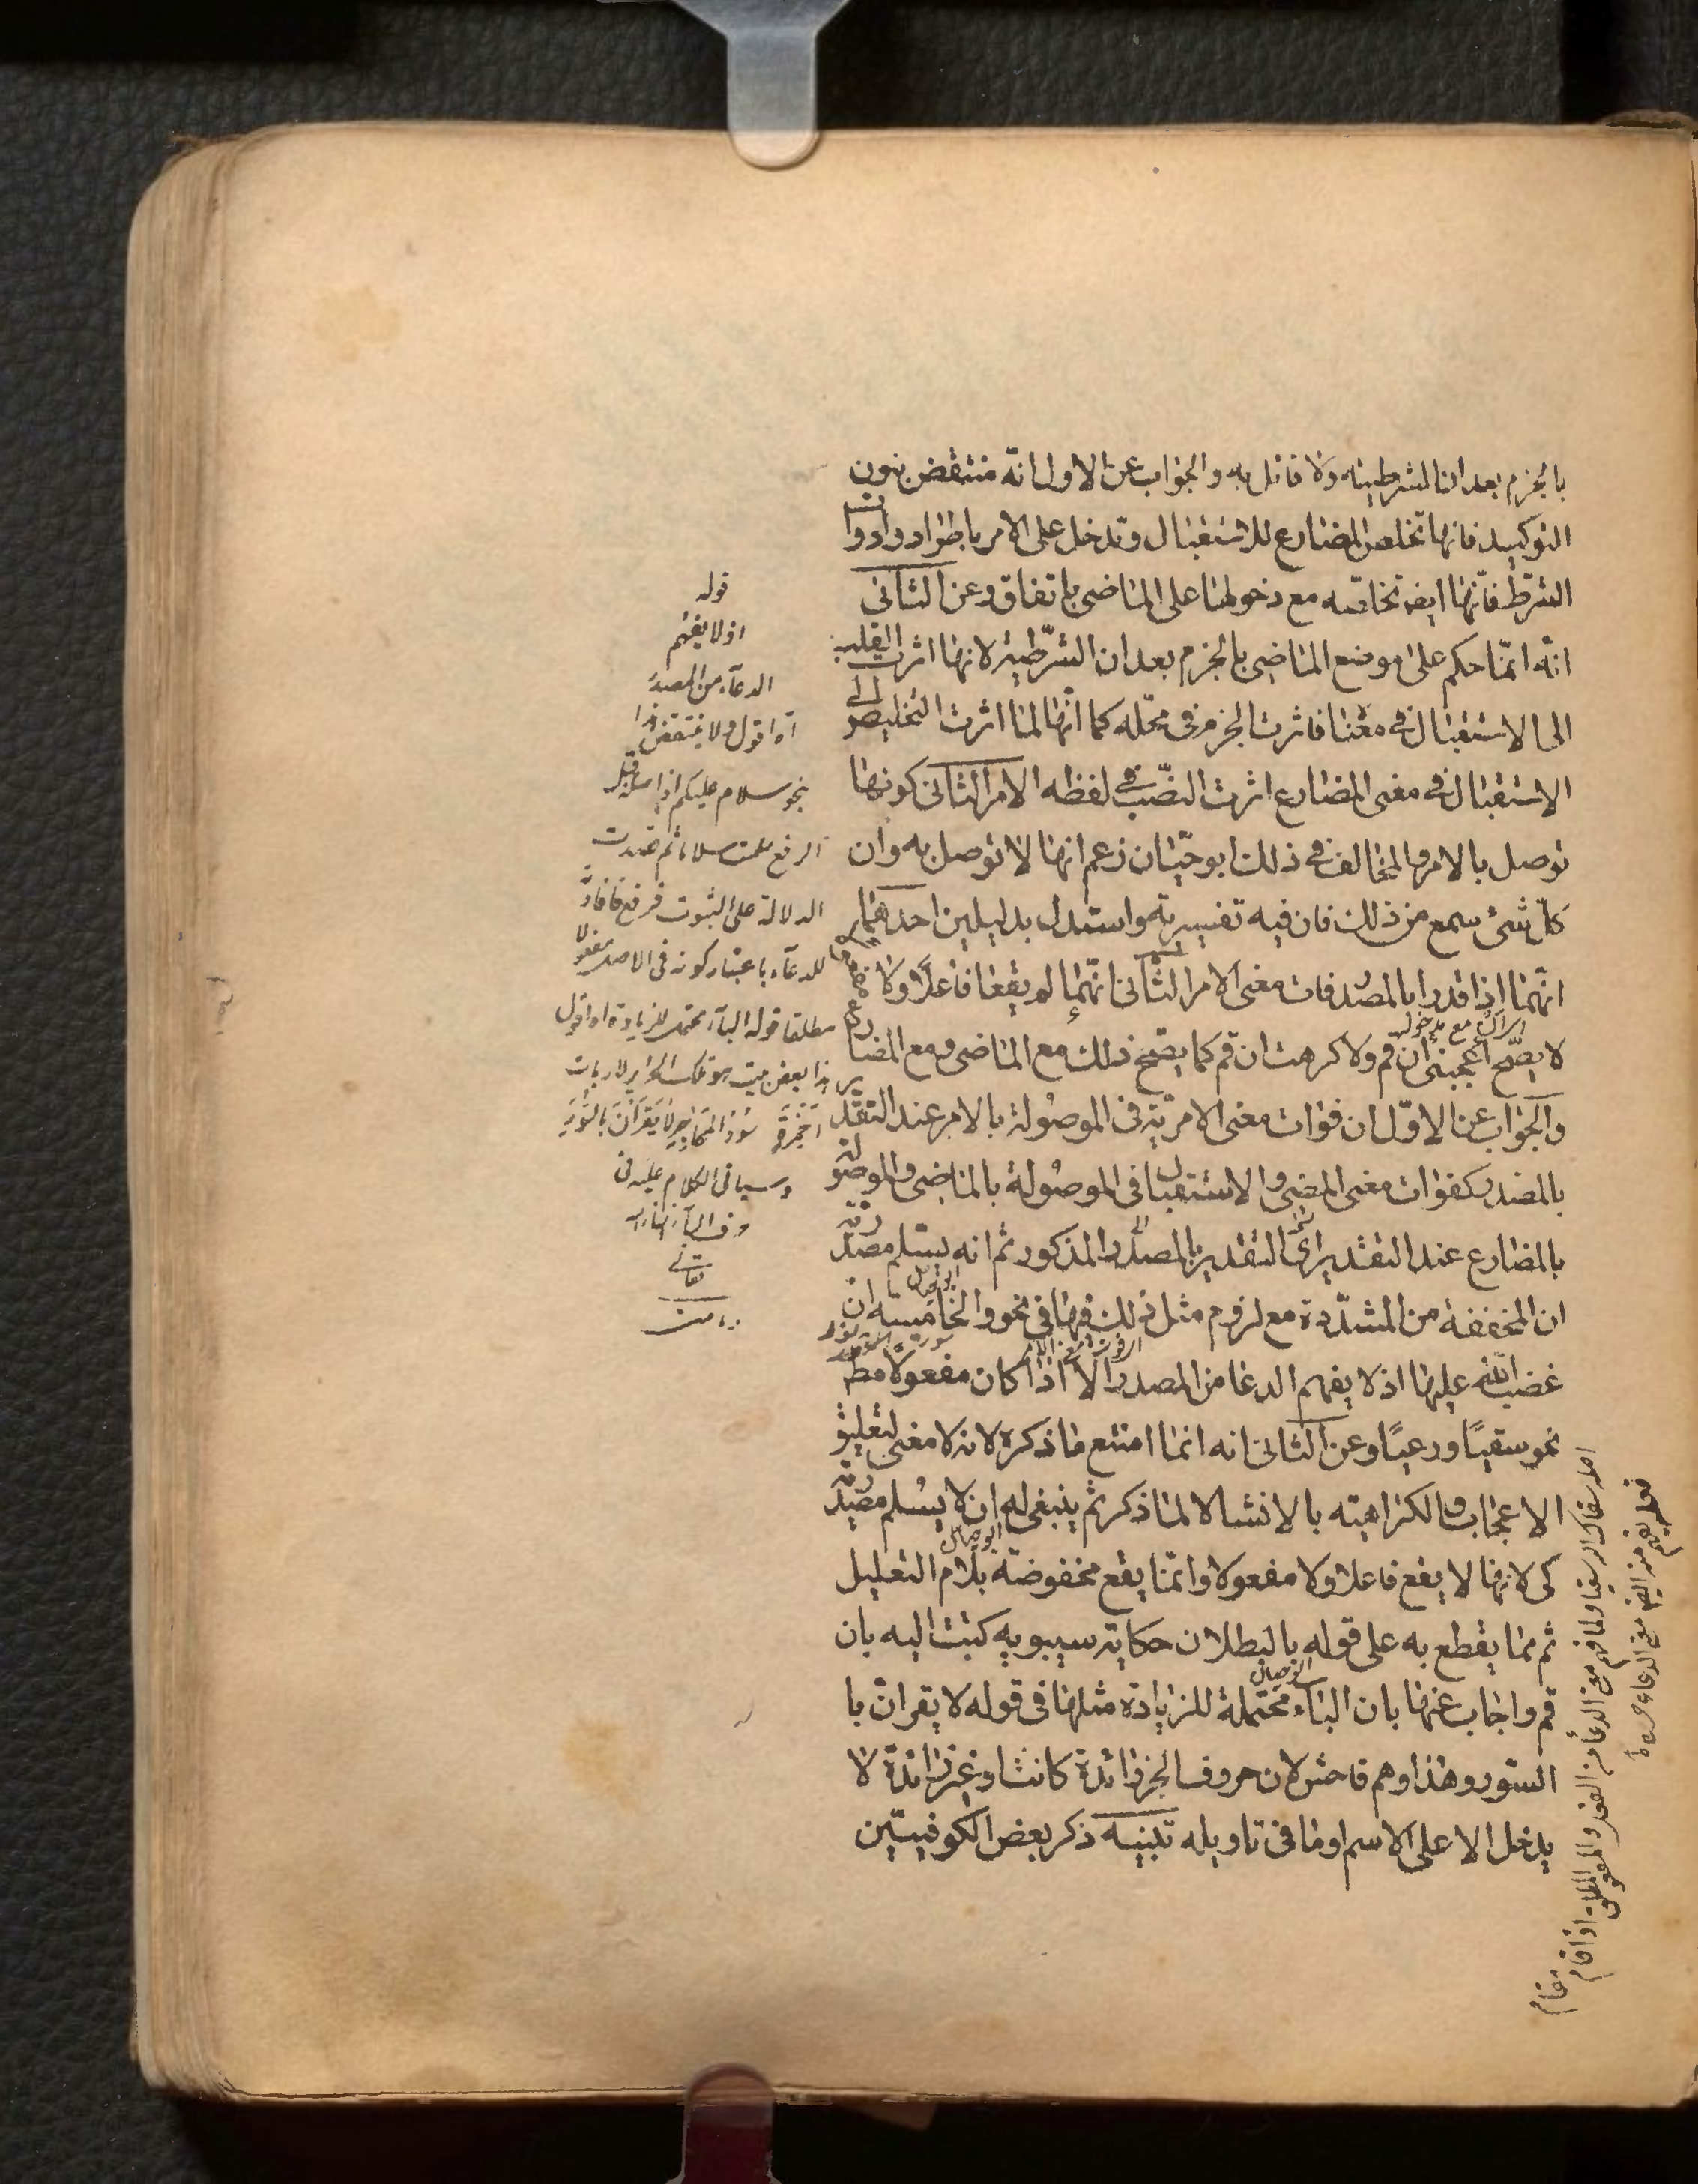 بالجزم بعد ان الشرطية ولا قائل به والجواب عن الاول انه منتقض بنون
التوكيد فانها تخلص المضارع للاستقبال وتدخل على الامر باطراد وادوات
الشرط فانها ايضا تخلصه مع دخولها على الماضى باتفاق وعن الثانى
انه انما حكم على موضع الماضى بالجزم بعد ان الشرطية لانها اثرت القلب
الى الاستقبال فى معناه فاثرت الجزم فى محله كما انها لما اثرت التخليص الى
الاستقبال فى معنى المضارع اثرت النصب فى لفظه الامر الثانى كونها
توصل بالامر والمخالف فى ذلك ابو حيان زعم انها لا توصل به وان
كل شىء سمع من ذلك فان فيه تفسيرية واستدل بدليلين احدهما
انهما اذا قدرا بالمصدر فات معنى الامر الثانى انهما لم يقعا فاعلا ولا
لا يصح اعجبنى ان قم ولا كرهت ان قم كما يصح ذلك مع الماضى ومع المضارع
والجواب عن الاول ان فوات معنى الامرية فى الموصولة بالامر عند التقد
بالمصدر كفوات معنى المضى والاستقبال فى الموصولة بالماضى والموصولة
بالمضارع عند التقدير اى التقدير بالمصدر المذكور ثم انه يسلم مصدرية
ان المخففة من المشددة مع لزوم مثل ذلك فيها فى نحو والخامسة ان
غضب الله عليها اذ لا يفهم الدعا من المصدر الا اذا كان مفعولا مط
نحو سقيا ورعيا وعن الثانى انه انما امتنع ما ذكره لانه لا معنى لتعليق
الاعجاب والكراهيته بالانشاء لا لما ذكر ثم ينبغى له ان لا يسلم مصدرية
كى لانها لا يقع فاعلا ولا مفعولا وانما يقع مخفوضة بلام التعليل
ثم مما يقطع به على قوله بالبطلان حكاية سيبويه كتبت اليه بان
قم واجاب عنها بان الباء محتملة للزيادة مثلها فى قوله لا يقران با
السور وهذا وهم فاحش لان حروف الجر زائدة كانت او غير زائدة لا
يدخل الا على الاسم او ما فى تاويله تنبيه ذكر بعض الكوفيين
قوله
اذ لا يفهم
الدعاء من المصدر
اه اقول ولا ينتقض هذا
بنحو سلام عليكم اذ اصله قبل
الرفع سلمت سلاما ثم قصدت
الدلالة على الثبوت فرفع فافاد
للدعاء باعتبار كونه فى الاصل مفعولا
مطلقا قوله الباء محتملة للزيادة اه اقول
هذا بعض بيت هو تلك الحرائر لا ربات
اخمرة سود المحاجر لا يقران بالسور
وسياتى الكلام عليه فى